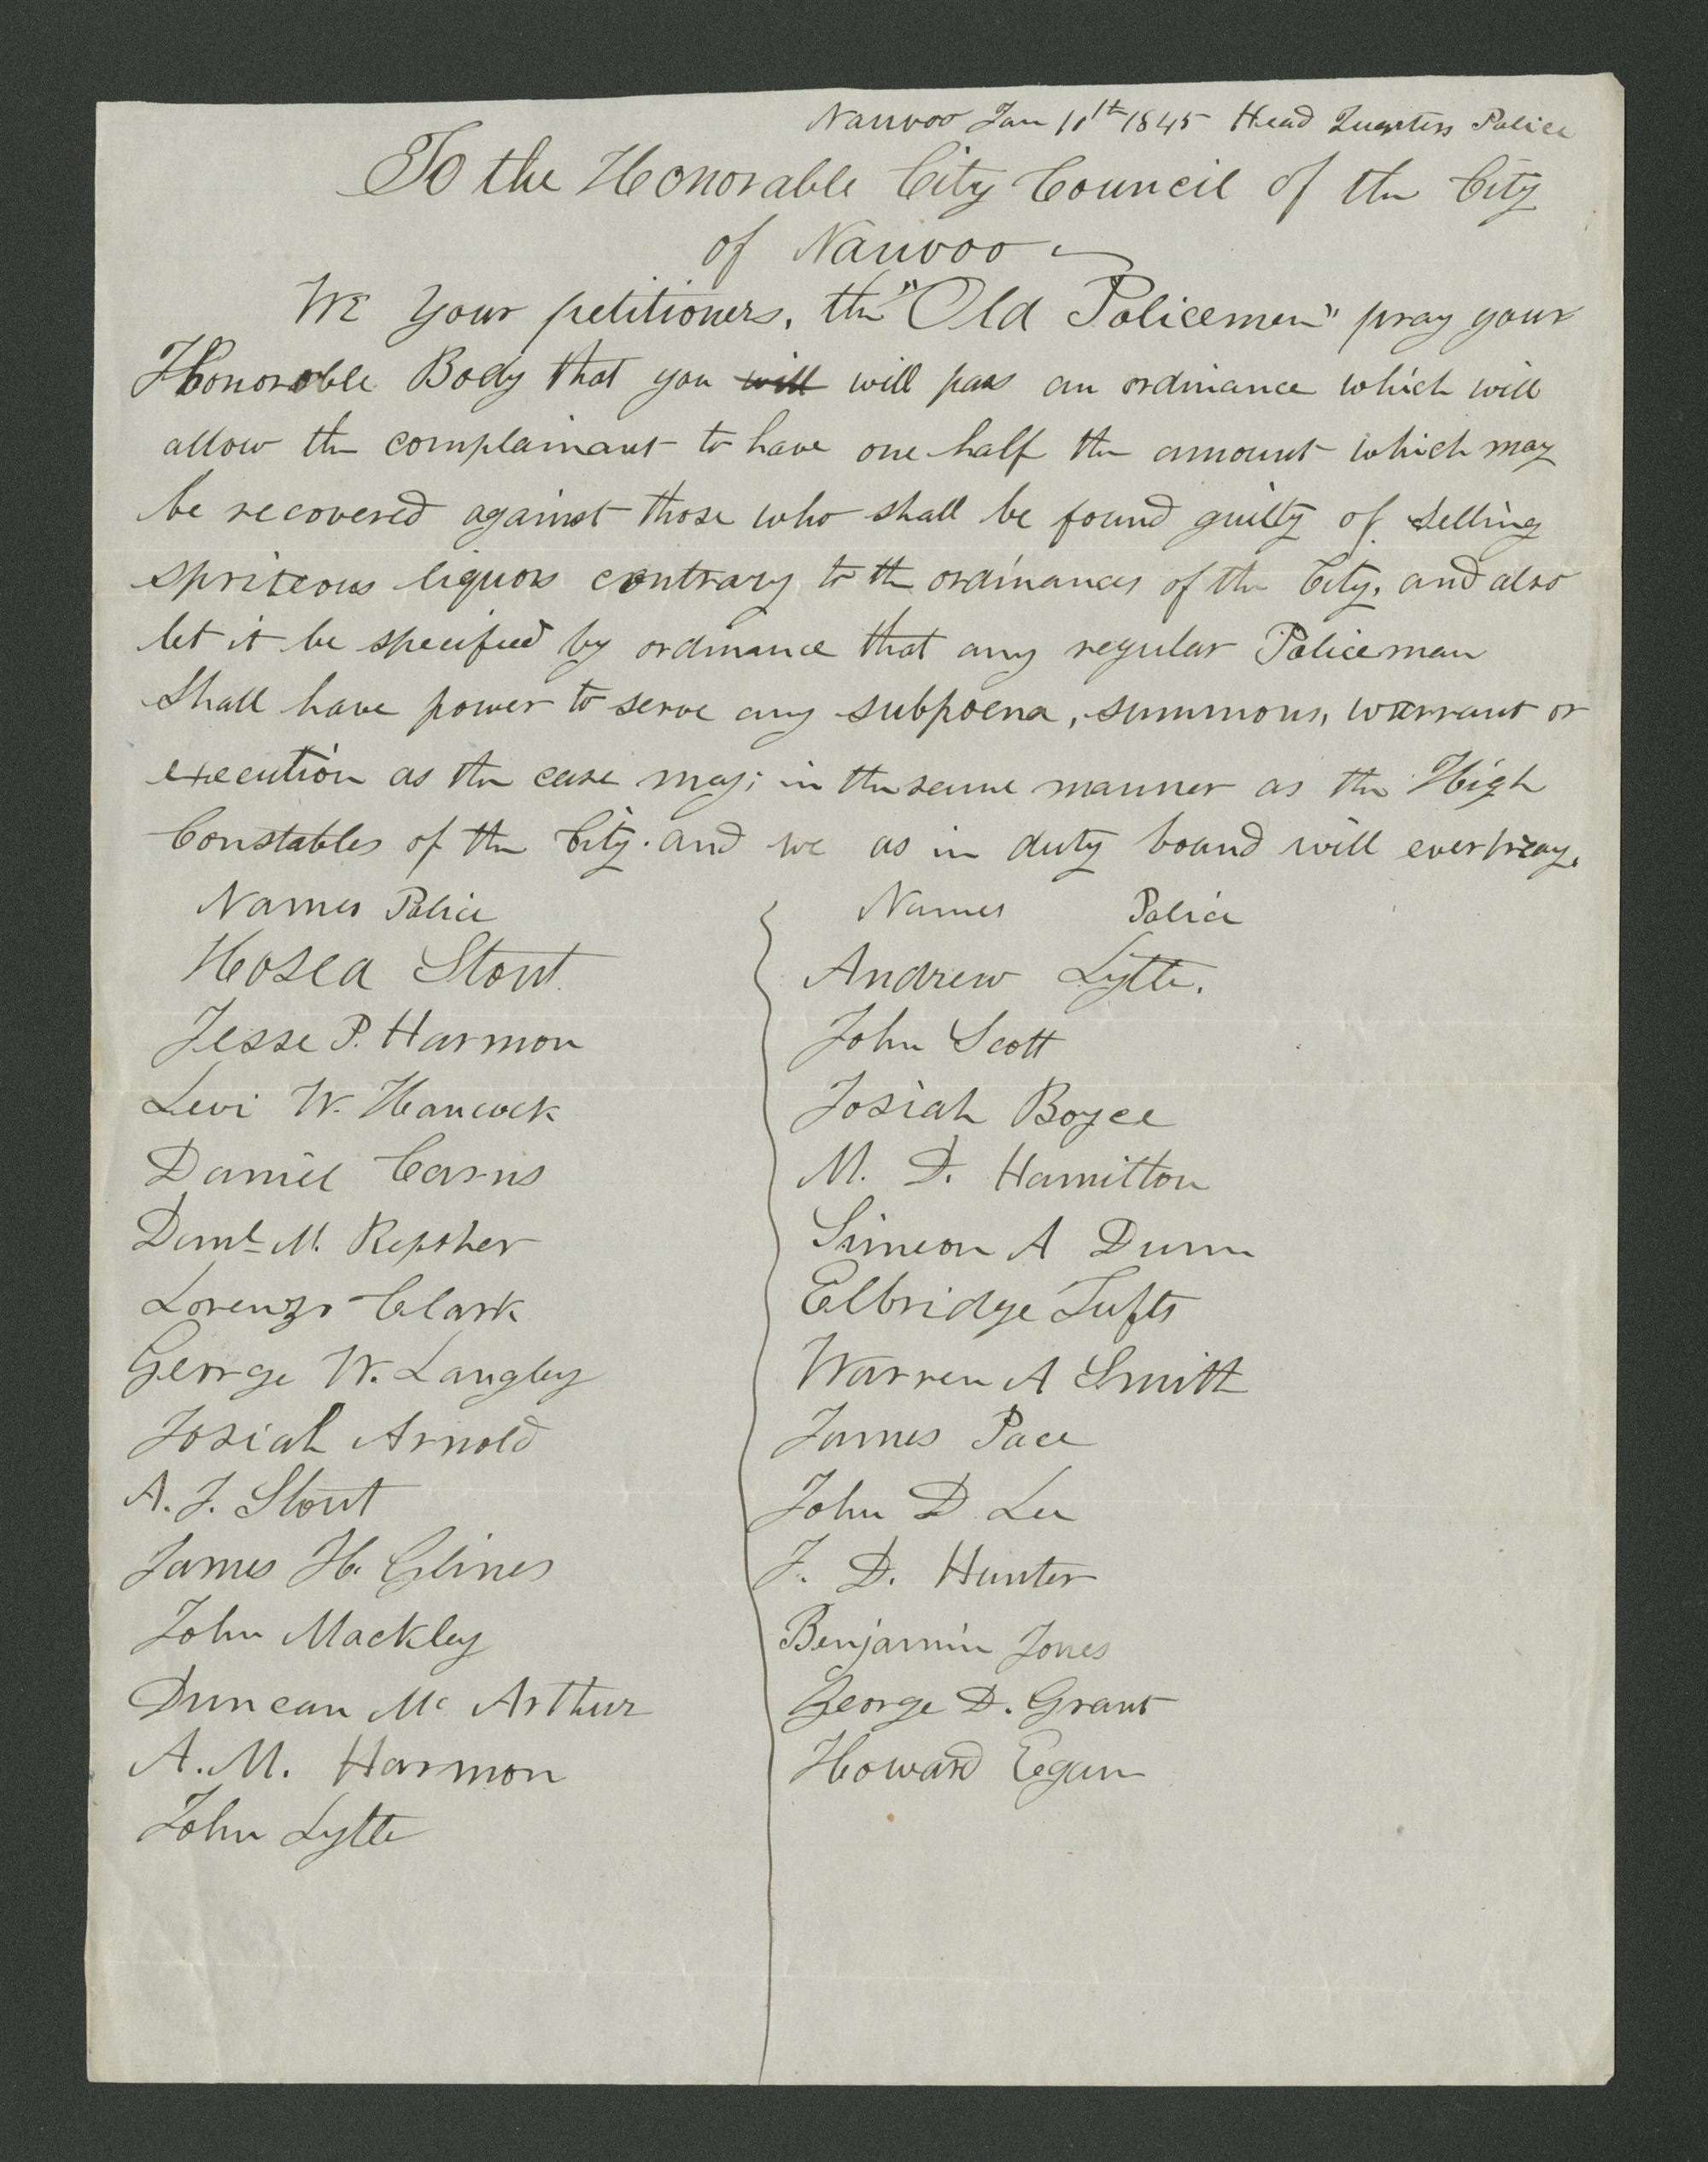 Nauvoo Jan 11th 1845 Head Quarters Police
To the Honorable City Council of the City
of Nauvoo
We your petitioners, the "Old Policemen" pray your
Honorable Body that you will will pass an ordinance which will
allow the complainant to have one half the amount which may
be recovered against those who shall be found guilty of selling
spriteous liquors contrary to the ordinances of the City, and also
let it be specified by ordinance that any regular Policeman
shall have power to serve any subpoena, summons, warrant or
execution as the case may; in the same manner as the High
Constables of the City. and we as in duty bound will ever pray.
Names Police
Hosea Stout
Jesse P. Harmon
Levi W. Hancock
Daniel Carns
Danl M. Repsher
Lorenzo Clark
George W. Langley
Josiah Arnold
A. J. Stout
James H. Glines
John Mackley
Duncan Mc Arthur
A. M. Harmon
John Lytle
Names Police
Andrew Lytle.
John Scott
Josiah Boyce
M. D. Hamilton
Simeon A Dunn
Elbridge Tufts
Warren A Smith
James Pace
John D Lee
J. D. Hunter
Benjamin Jones
George D. Grant
Howard Egan